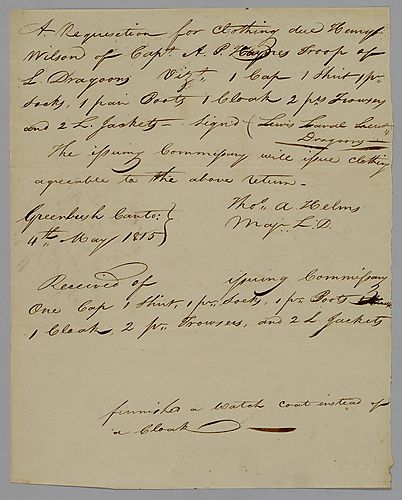 A Requisition for Clothing due Henry
Wilson of Capt. A. P. Haynes Troop of
L Dragoons Vizt. 1 Cap 1 Shirt 1 pr.
Socks, 1 pair Boots 1 Cloak 2 prs Trowsers
and 2 L. Jackets – Signed (Lewis Lieut
Dragoons
The issuing Commissary will issue clothing
agreeable to the above return –
Greenbush Canto:
4th May 1815
Thos. A Helms
Majr L. D.
Received of issuing Commissary
One Cap 1 Shirt, 1 pr. Socks, 1 pr. Boots
1 Cloak, 2 pr. Trowsers, and 2 L Jackets
furnished a Watch coat instead of
a Cloak